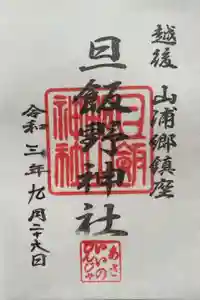 越後 山浦郷鎮座
旦飯野神社
令和三年九月二十六日
あさ
いいの
じんじゃ